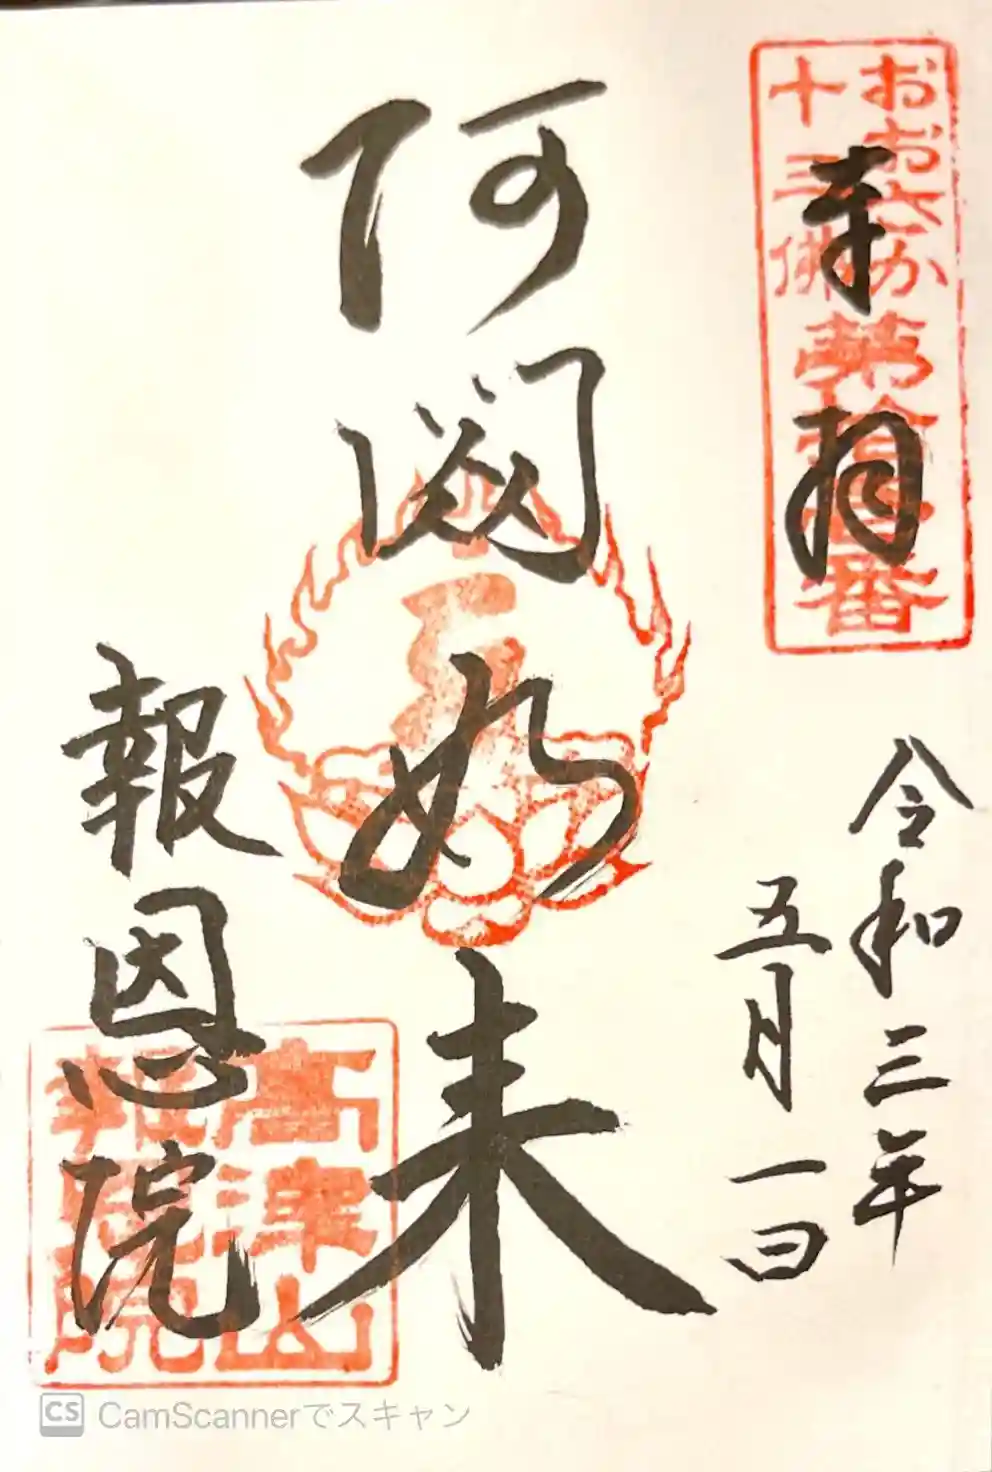 おおさか
十三佛
第拾壱番
奉拝
令和三年
五月一日
阿閦如来
報恩院
高津山
報恩院
CS CamScannerでスキャン